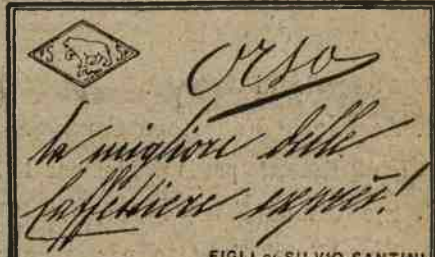 Orso
la migliore delle
Caffettiere exprés!
FIGLI di SILVIO SANTINI